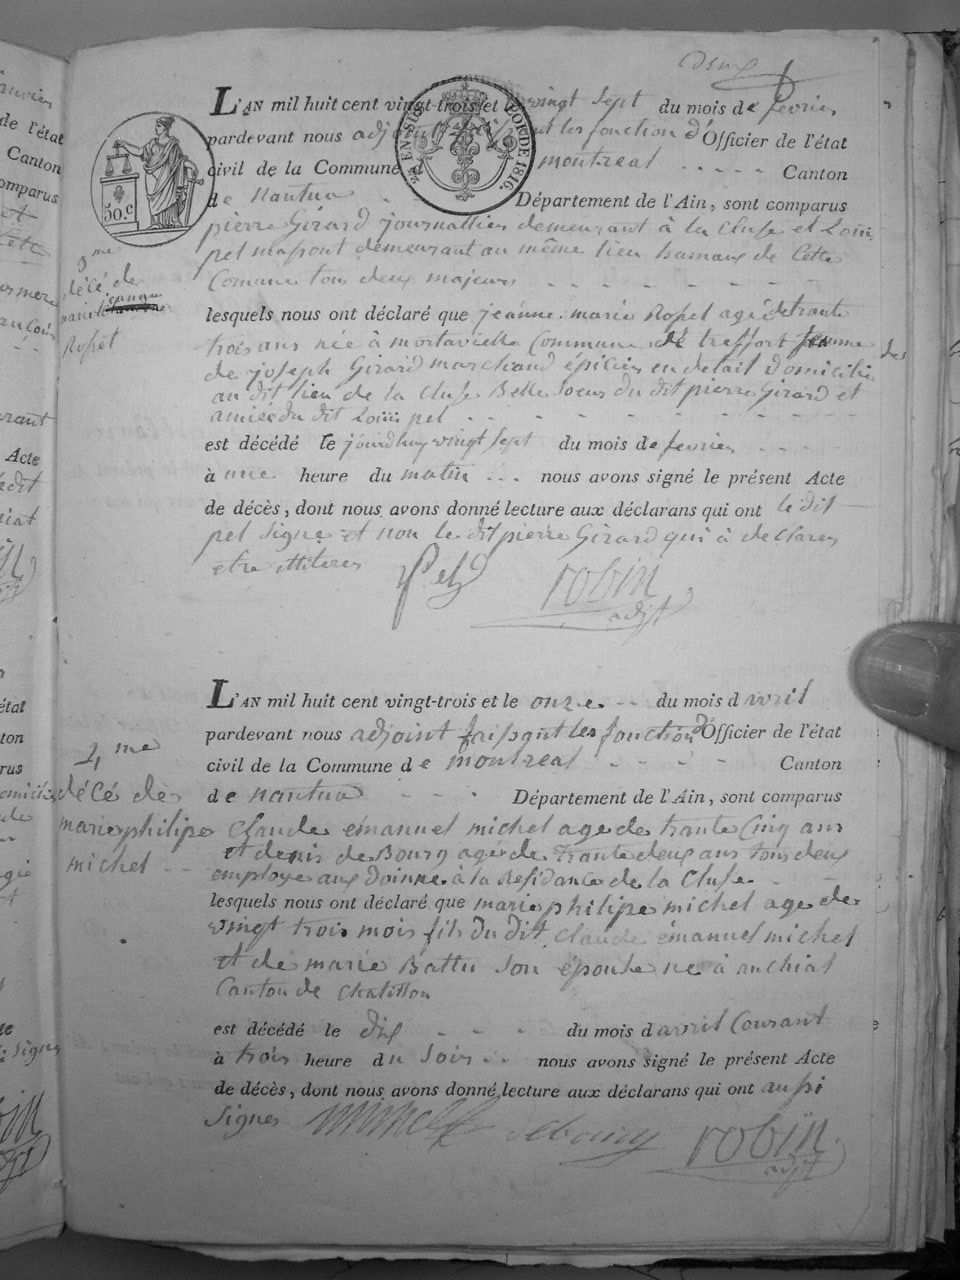 deux
L'AN mil huit cent vingt-trois et le vingt sept du mois de fevrier
pardevant nous adjoint les fonction d'Officier de l'état
civil de la Commune montreal Canton
de nantua Département de l'Ain, sont comparus
pierre Girard journallier demeurant à la Cluse et Loüis
pel masson demeurant au même lieu hameau de Cette
Comune tous deux majeurs
lesquels nous ont déclaré que jeanne marie Ropet agé de trante
trois ans née à Commune de treffort femme
de joseph Girard marchand épicier en detail domicilié
au dit lieu de la Cluse Belle Soeur du dit pierre Girard et
amie du dit Loüis pel
est décédé le jourdhuy vingt sept du mois de fevrier
à une heure du matin nous avons signé le présent Acte
de décès, dont nous avons donné lecture aux déclarans qui ont le dit
pel Signe et non le dit pierre Girard qui à declarer
etre illiteres
Pel robin
adjt
3me
décé de
Ropet
50.c
EN SUS
FOR DE 1816.
L'AN mil huit cent vingt-trois et le onze du mois d avril
pardevant nous adjoint faisant les fonction d'Officier de l'état
civil de la Commune de montreal Canton
de nantua Département de l'Ain, sont comparus
Claude émanuel michel age de trante Cinq ans
et denis de Bourg agé de trante deux ans tous deux
employe aux doinne à la Residance de la Cluse
lesquels nous ont déclaré que marie philipe michel age de
vingt trois mois fils du dit Claude émanuel michel
et de marie Battu son épouse né à anchiat
Canton de Chatillon
est décédé le dix du mois d avril Courant
à trois heure du Soir nous avons signé le présent Acte
de décès, dont nous avons donné lecture aux déclarans qui ont aussi
Signes debourg robin
adjt
4me
décé de
marie philipe
michel